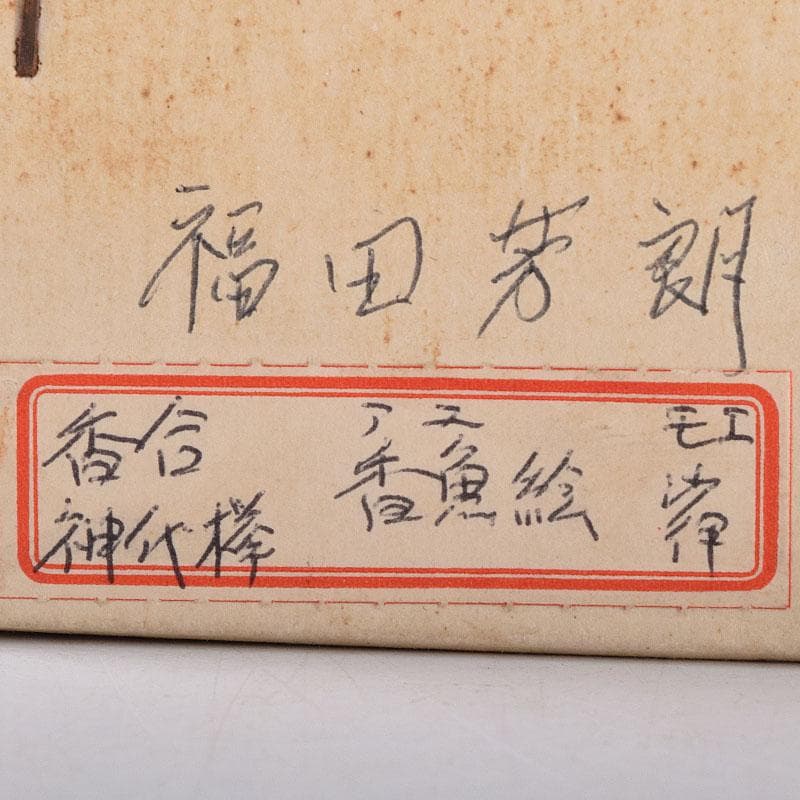 福田芳朗
香合
神代欅
アユ
香魚絵